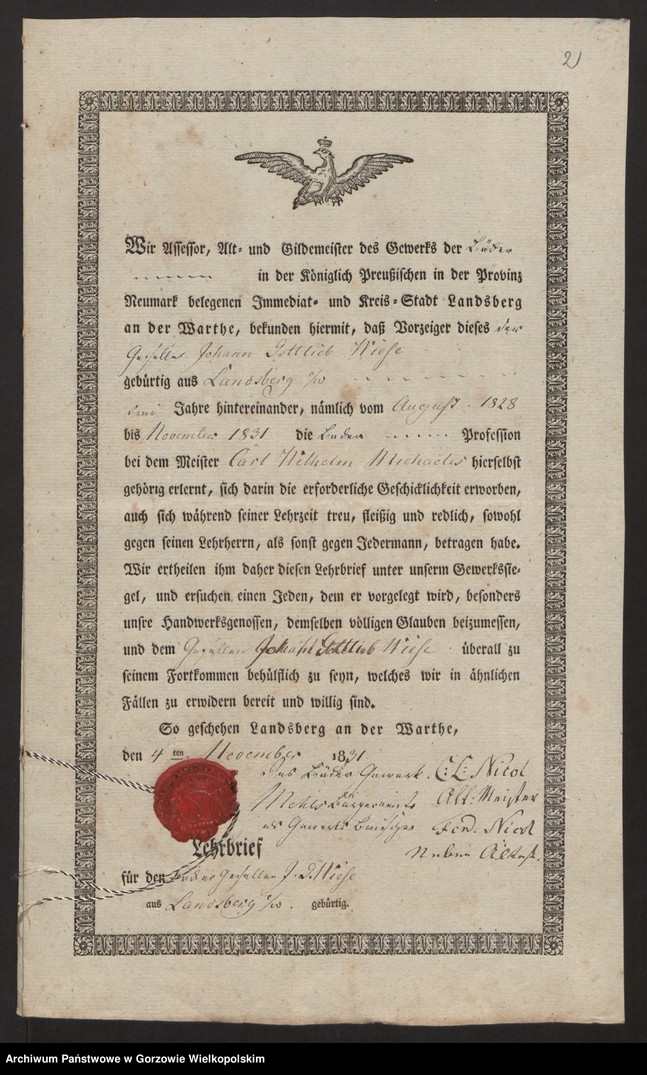 2
Wir Assessor, Alt- und Gildemeister des Gewerks der
in der Königlich Preußischen in der Provinz
Neumark belegenen Immediat- und Kreis-Stadt Landsberg
an der Warthe, bekunden hiermit, daß Vorzeiger dieses der
Geselle Johann Gottlieb Wiese
gebürtig aus Landsberg a/w
drei Jahre hintereinander, nämlich vom August 1828
bis November 1831 die Profession
bei dem Meister Carl Wilhelm Michaelis hierselbst
gehörig erlernt, sich darin die erforderliche Geschicklichkeit erworben,
auch sich während seiner Lehrzeit treu, fleißig und redlich, sowohl
gegen seinen Lehrherrn, als sonst gegen Jedermann, betragen habe.
Wir ertheilen ihm daher diesen Lehrbrief unter unserm Gewerkssie-
gel, und ersuchen einen Jeden, dem er vorgelegt wird, besonders
unsre Handwerksgenossen, demselben völligen Glauben beizumessen,
und dem Gesellen Johann Gottlieb Wiese überall zu
seinem Fortkommen behülflich zu seyn, welches wir in ähnlichen
Fällen zu erwidern bereit und willig sind.
So geschehen Landsberg an der Warthe,
den 4 ten November 1831
Gewerk. C: L: Nicol
Alt-Meister
als Gewerks Beisitzer Ferd. Nicol
Neben
Lehrbrief
für den Gesellen J. G. Wiese
aus Landsberg a/w. gebürtig.
Archiwum Państwowe w Gorzowie Wielkopolskim